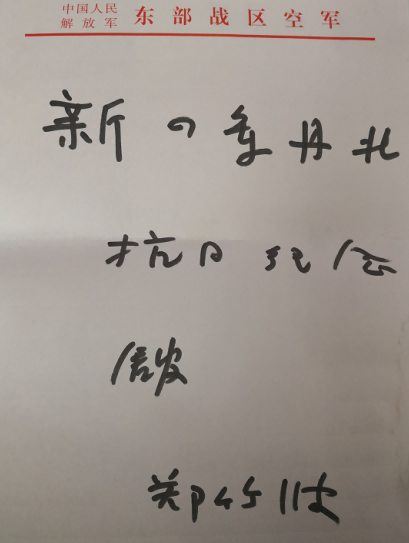 中国人民
解放军 东部战区空军
新四军丹北
抗日纪念
郑